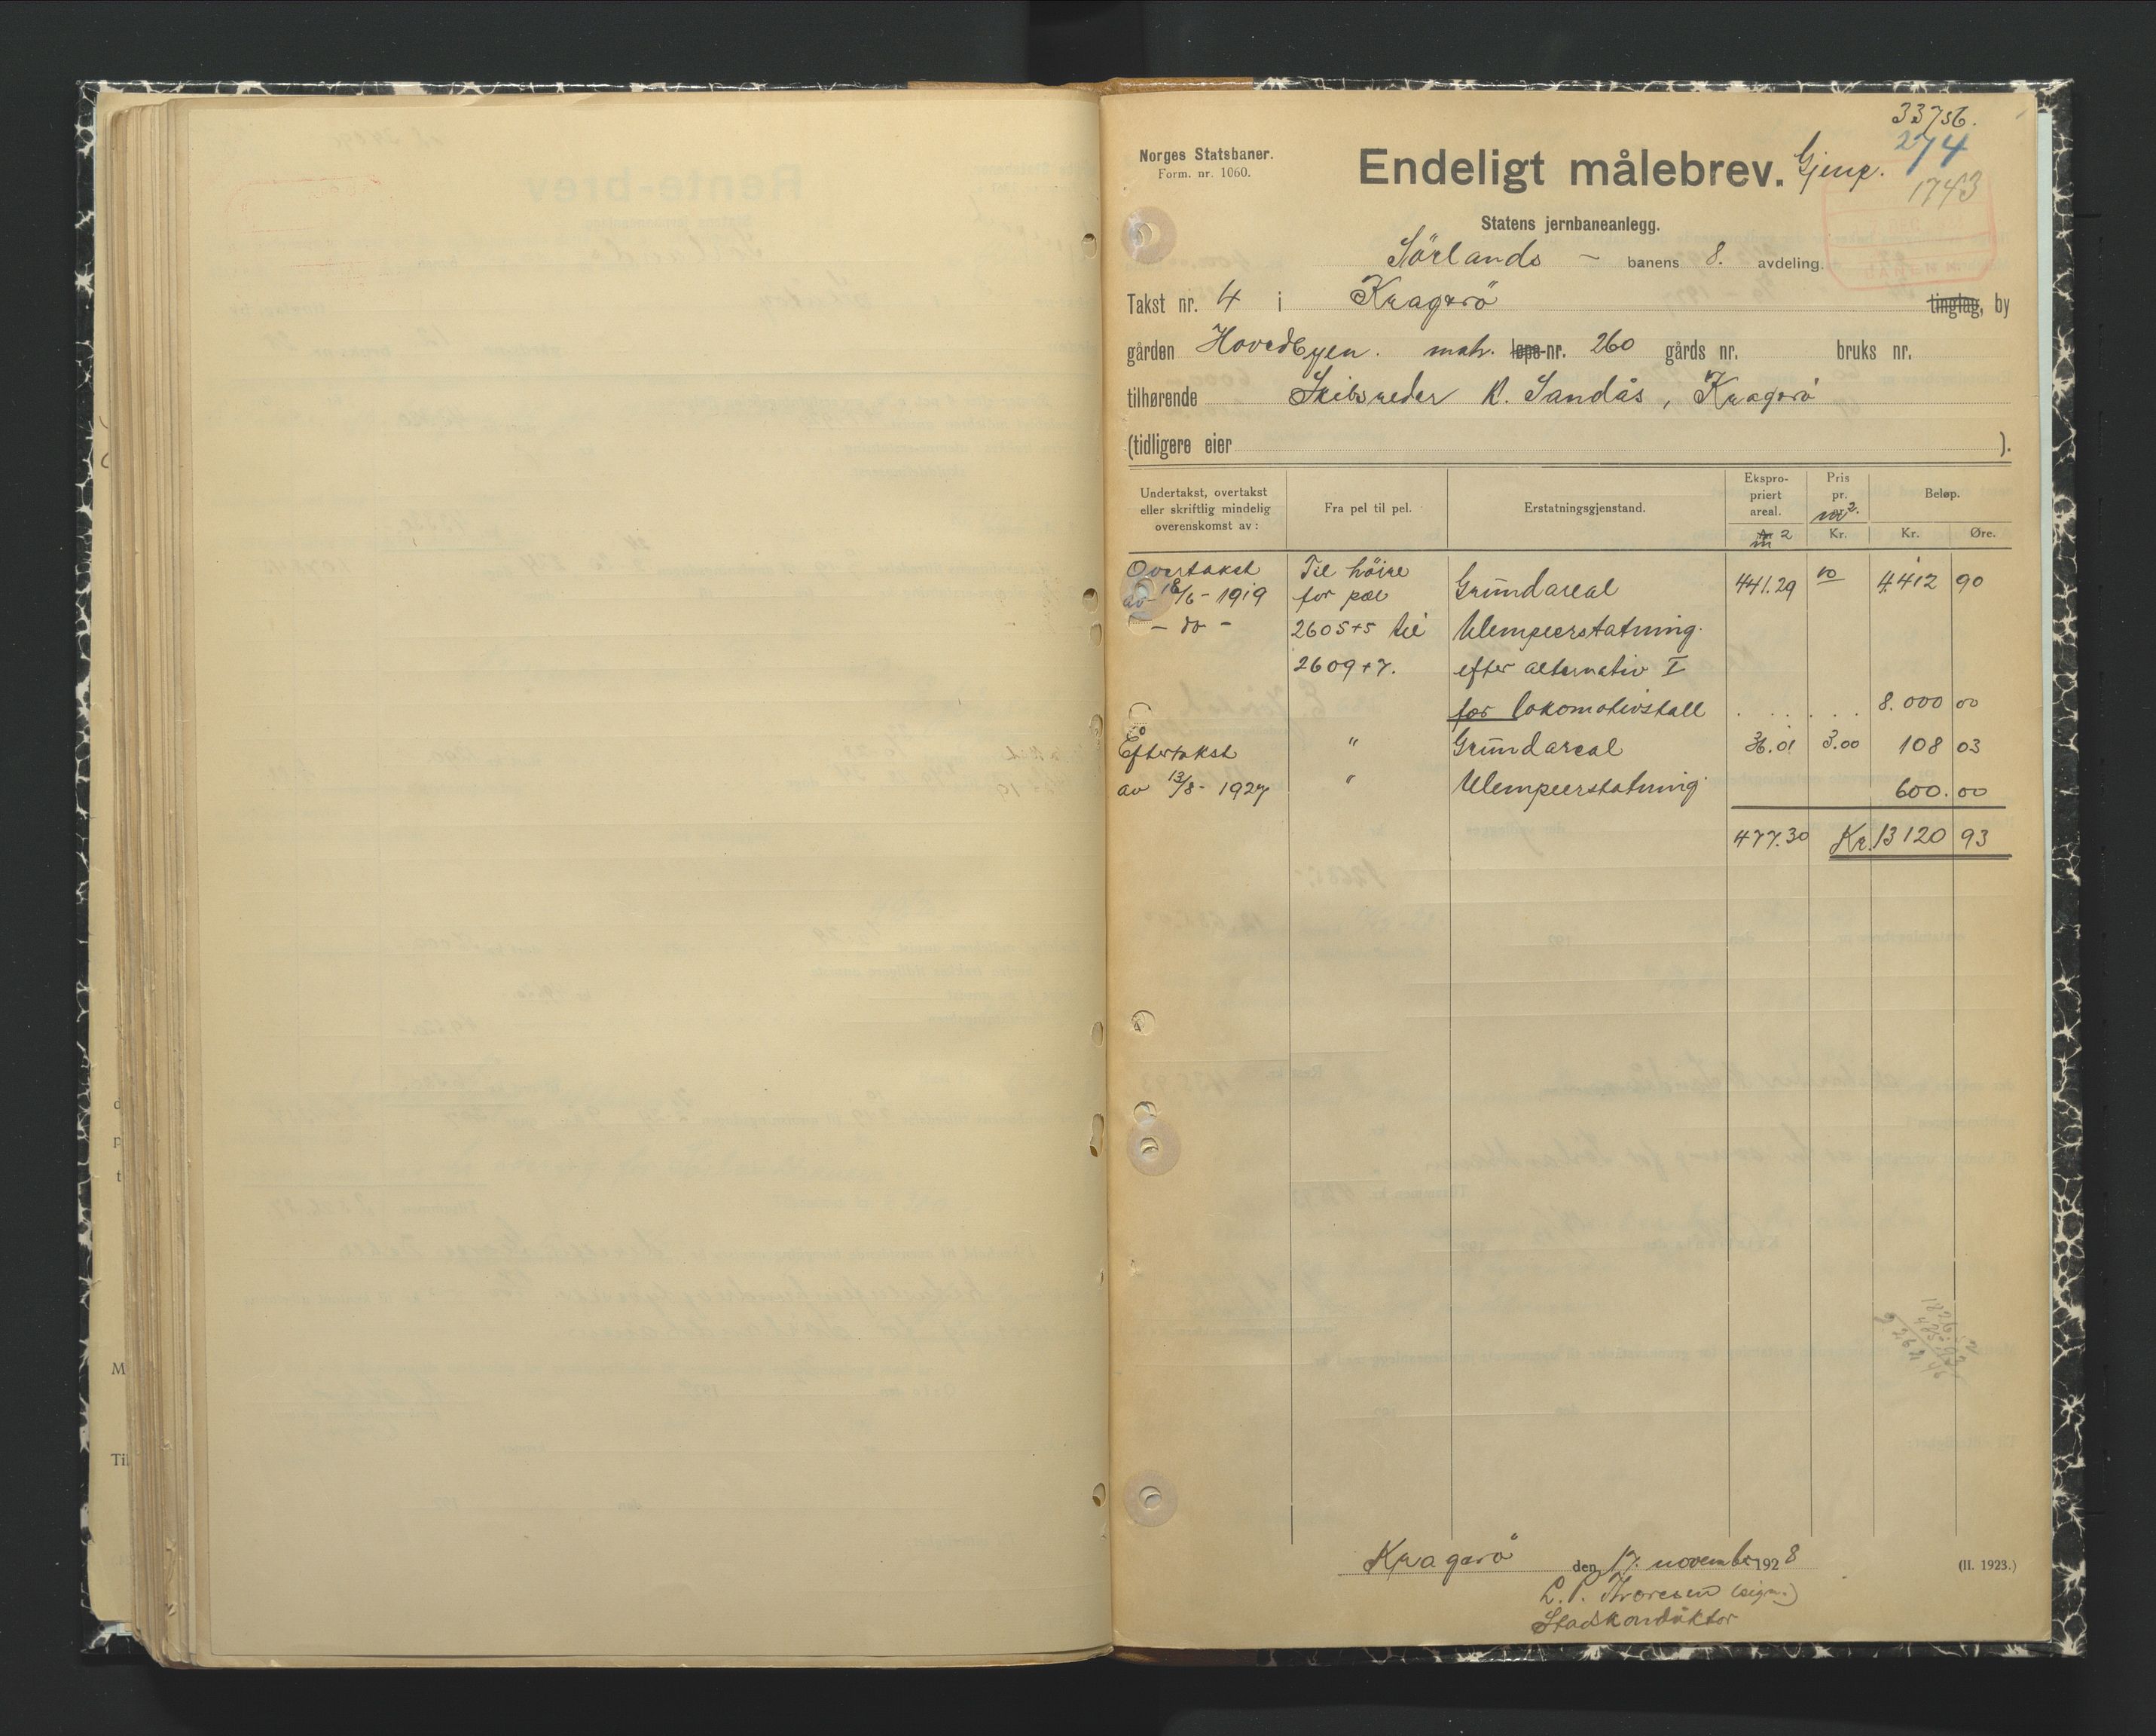 33756.
274
1743
Norges Statsbaner.
Form. nr. 1060.
Endeligt målebrev. Gjenp.
Statens jernbaneanlegg.
Sörlands - banens 8. avdeling.
Takst nr. 4 i Kragerö tinglag, by
gården Hovedbyen. matr. løpe-nr. 260 gårds nr. bruks nr.
tilhørende Skibsreder K. Sandås, Kragerö
(tidligere eier ).
Undertakst, overtakst eller skriftlig mindelig overenskomst av: Fra pel til pel. Erstatningsgjenstand. Ekspropriert areal. m 2 Pris pr. m2. Kr. Beløp. Kr. Øre.
Overtakst Til höire
av 18/6 - 1919 for pæl Grundareal 441.29 10 4.412 90
- do - 2605+5 til Ulempeerstatning
2609+7. efter alternativ I
for lokomotivstall 8.000 00
Eftertakst " Grundareal 36.01 3.00 108 03
av 13/8 - 1927 " Ulempeerstatning 600.00
477.30 Kr. 13120 93
Kragerö den 17. november 1928
(II. 1923.)
L. P. Thoresen (sign.)
Stadskonduktör